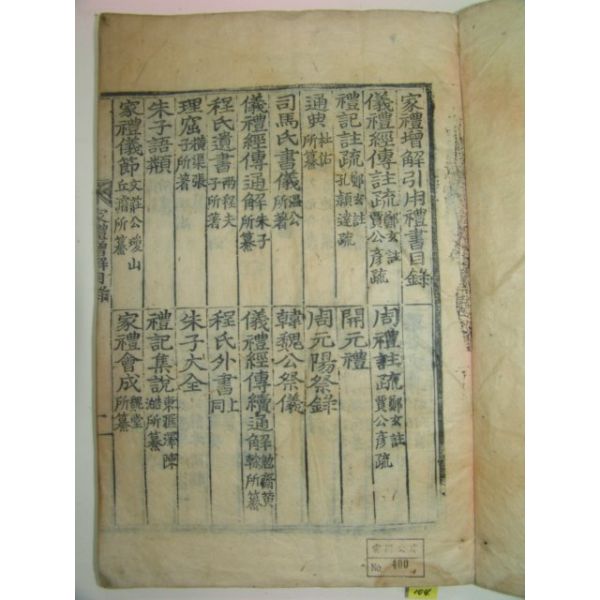 家禮增解引用禮書目錄
儀禮經傳註疏 鄭玄註 賈公彥疏
周禮註疏 鄭玄註 賈公彥疏
禮記註疏 鄭玄註 孔穎達疏
開元禮
通典 杜佑所纂
周元陽祭錄
司馬氏書儀 溫公所著
韓魏公祭儀
儀禮經傳通解 朱子所纂
儀禮經傳續通解 勉齋黃榦所纂
程氏遺書 兩程夫子所著
程氏外書 上同
理窟 橫渠張子所著
朱子大全
朱子語類
禮記集說 東滙澤陳皓所纂
家禮儀節 文莊公瓊山丘濬所纂
家禮會成 魏堂所纂
家禮增解目錄
一
No 400
104